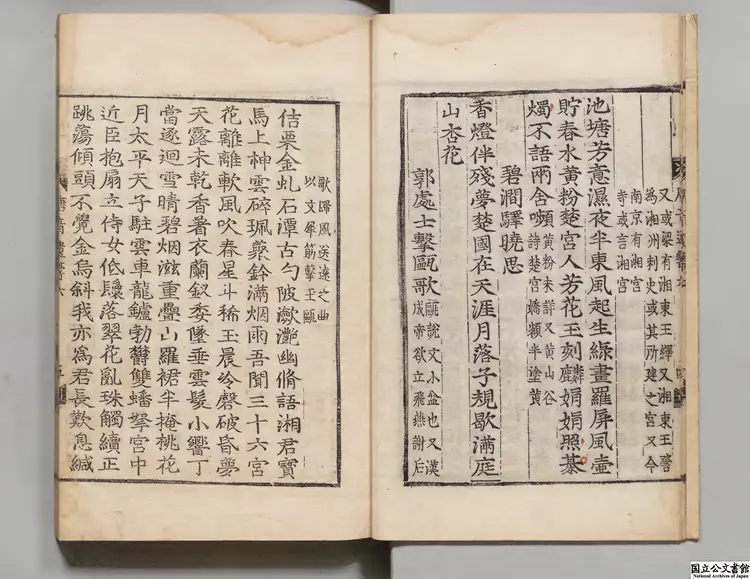 又或梁有湘東王繹又湘東王詧
爲湘州刺史或其所建之宮又今
南京有湘宮
寺或言湘宮
池塘芳意濕夜半東風起生綠畫羅屏風壺
貯春水黄粉楚宮人芳花玉刻麟娟娟照棊
燭不語兩含嚬
黄粉未詳又黄山谷
詩楚宮嬌額半塗黄
碧澗驛曉思
香燈伴殘夢楚國在天涯月落子規歇滿庭
山杏花
郭處士擊甌歌
甌說文小盆也又漢
成帝欲立飛燕謝后
歌歸風送遠之曲
以文犀筯擊玉甌
佶栗金虬石潭古勺陂瀲灧幽脩語湘君寳
馬上神雲碎珮叢鈴滿烟雨吾聞三十六宮
花離離軟風吹春星斗稀玉晨冷磬破昏夢
天露未乾香着衣蘭釵委墜垂雲髮小響丁
當逐迴雪晴碧烟滋重疊山羅裙半掩桃花
月太平天子駐雲車龍鑪勃鬱雙蟠拏宮中
近臣抱扇立侍女低鬟落翠花亂珠觸續正
跳蕩傾頭不覺金烏斜我亦爲君長歎息緘
国立公文書館
National Archives of Japan